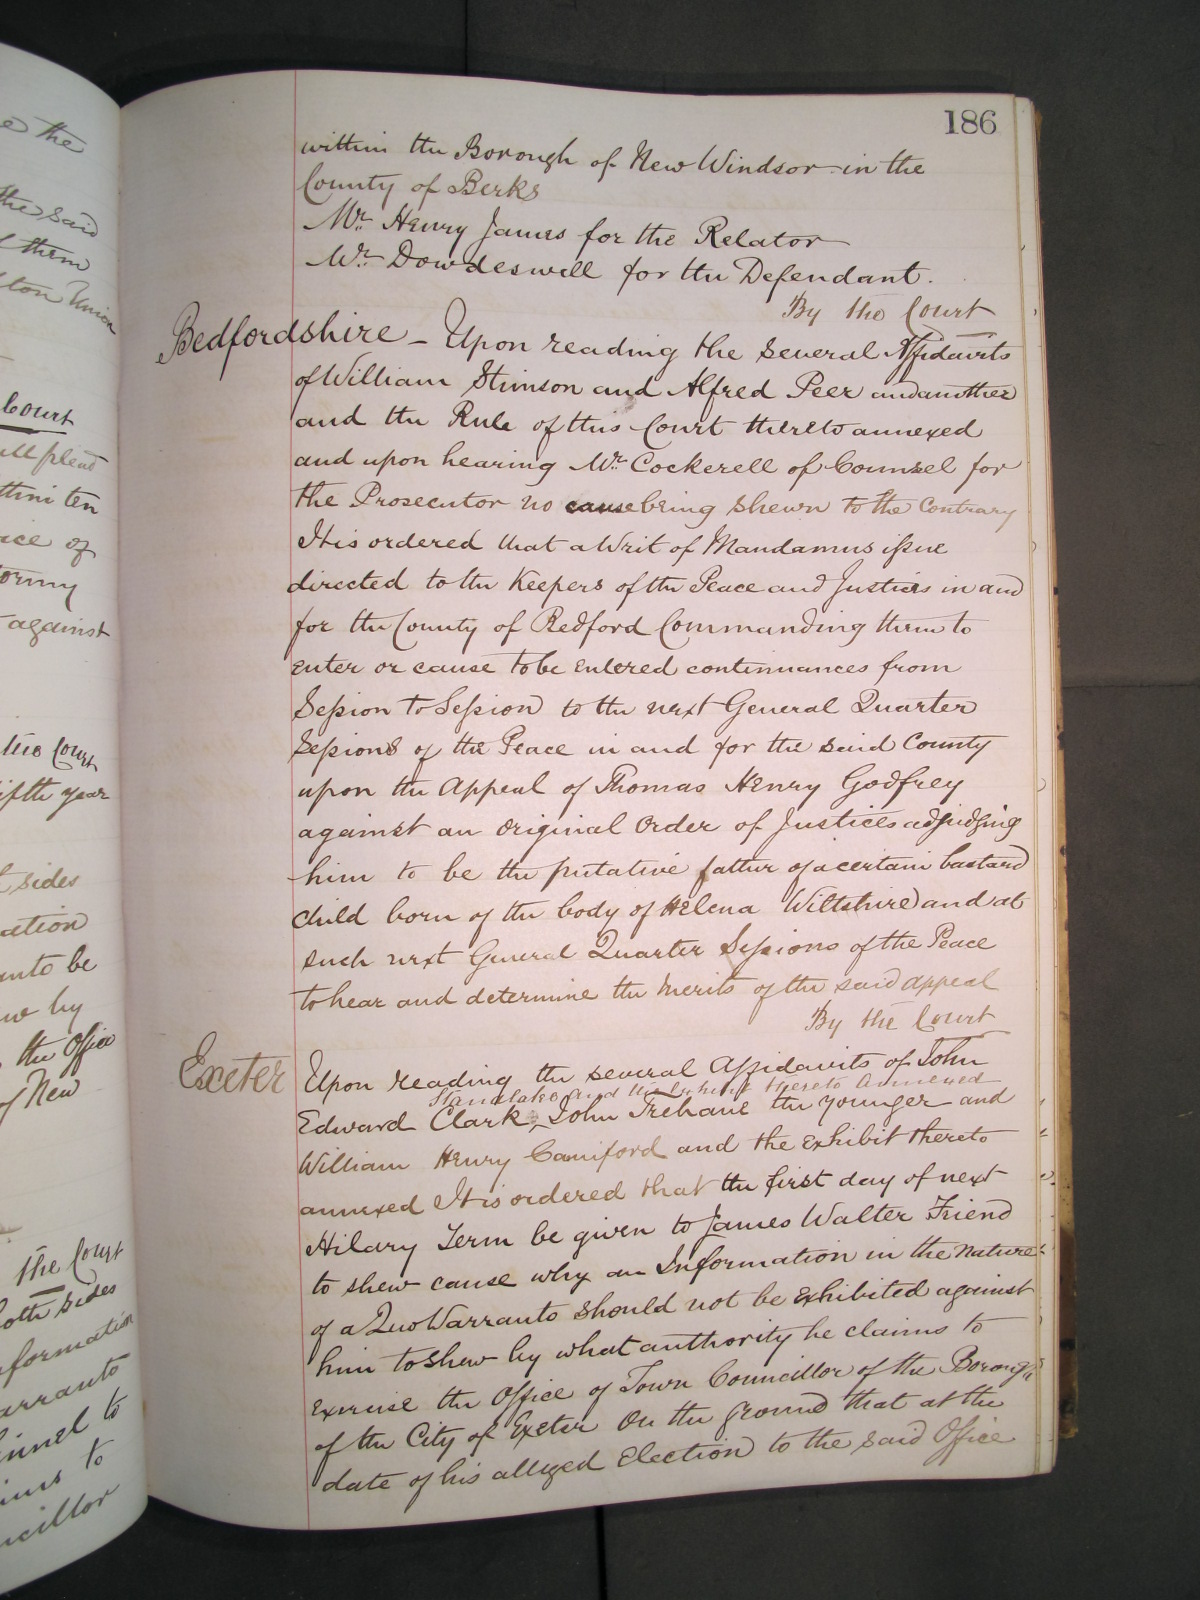 186
within the Borough of New Windsor in the
County of Berks
Mr. Henry James for the Relator
Mr. Dowdeswell for the Defendant.
By the Court
Bedfordshire - Upon reading the several Affidavits
of William Stimson and Alfred Peer and another
and the Rule of this Court thereto annexed
and upon hearing Mr. Cockerell of Counsel for
the Prosecutor no cause being shewn to the contrary
It is ordered that a Writ of Mandamus issue
directed to the Keepers of the Peace and Justices in and
for the County of Bedford Commanding them to
enter or cause to be entered continuances from
Session to Session to the next General Quarter
Sessions of the Peace in and for the said County
upon the Appeal of Thomas Henry Godfrey
against an original Order of Justices adjudging
him to be the putative father of a certain bastard
child born of the body of Helena Wiltshire and at
such next General Quarter Sessions of the Peace
to hear and determine the merits of the said appeal
By the Court
Exeter Upon reading the several Affidavits of John
Standlake and the Exhibit thereto annexed
Edward Clark, John Trehane the younger and
William Henry Camiford and the exhibit thereto
annexed It is ordered that the first day of next
Hilary Term be given to James Walter Friend
to shew cause why an Information in the nature
of a Quo Warranto should not be exhibited against
him to shew by what authority he claims to
exercise the Office of Town Councillor of the Borough
of the City of Exeter On the ground that at the
date of his alleged Election to the said Office
e the
the said
them
ton Union
Court
ten
ice of
against
the Court
fifth year
sides
ation
anto be
by
the Office
of New
the Court
both sides
nformation
arranto
to
to
ncillor